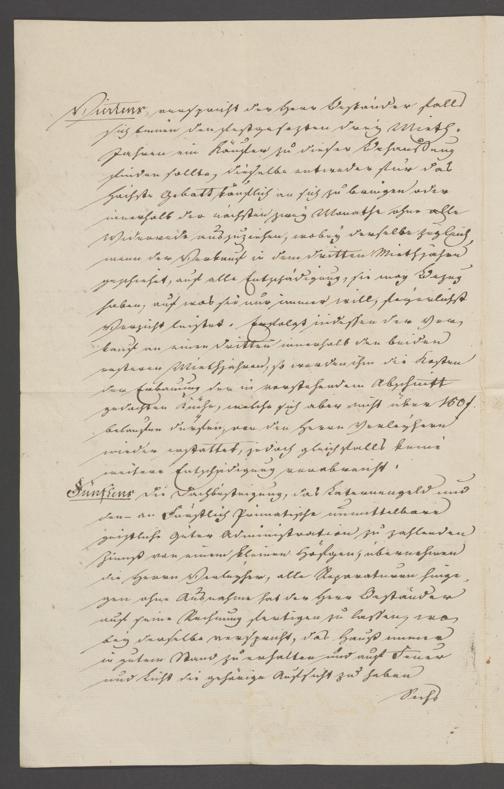 Viertens, verspricht der Herr Beständer falls
sich binnen den festgesezten drey Mieth-
Jahren ein Käufer zu dieser Behaussung
finden sollte, dieselbe entweder für das
höchste Gebott käuflich an sich zu bringen oder
innerhalb der nächsten zwey Monathe ohne alle
Widerrede auszuziehen, wobey derselbe zugleich,
wenn der Verkauf in dem dritten Miethjahre
geschiehet, auf alle Entschädigung, sie mag Bezug
haben, auf was sie nur immer will, feyerlichst
Verzicht leistet. Erfolgt indessen der Ver-
kauf an einen dritten innerhalb den beiden
ersteren Miethjahren, so werden ihm die Kosten
der Erbauung der in vorstehendem Abschnitt
gedachten Küche, welche sich aber nicht über 160 f.
belaufen dürfen, von den Herrn Verleyhern
wieder erstattet, jedoch gleichfalls keine
weitere Entschädigung verabreicht.
Fünftens Die Dachbesteigung, das Laternengeld und
den an Fürstlich Primatische unmittelbare
geistliche Güter Administration zu zahlenden
Zinnß von einem kleinen Höfgen, übernehmen
die Herren Verleyher, alle Reparaturen hinge-
gen ohne Ausnahme hat der Herr Beständer
auf seine Rechnung fertigen zu lassen, wo-
bey derselbe verspricht, das Hauß immer
in gutem Stand zu erhalten und auf Feuer
und Licht die gehörige Aufsicht zu haben
Sechs